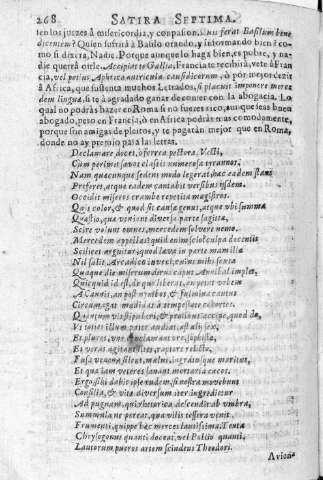 268 SATIRA SEPTIMA.
ten los juezes à misericordia, y conpasion. Quis ferat Basilum bene
dicentem? Quien sufrirà à Basilo orando, y informando bien? co-
mo si dixera, Nadie. Porque aunque lo haga bien, es pobre, y na-
die querrà oirle. Accipiat te Gallia, Francia te recibirà, vete à Fran
cia, vel potius Aphrica nutricula causidicorum, ò por mejor dezir
à Africa, que sustenta muchos Letrados, si placuit imponere merce
dem linguæ, si te à agradado ganar de comer con la abogacia. Lo
qual no podràs hazer en Roma si no fueres rico, aunque seas buen
abogado, peso en Francia, ò en Africa podràs mas comodamente,
porque son amigas de pleitos, y te pagaràn mejor que en Roma,
donde no ay premio para las letras.
Declamare doces, ô ferrea pectora Vecti,
Cùm perimit sævos classis numerosa tyrannos.
Nam quæcunque sedens modo legerat, hæc eadem stans
Preferet, atque eadem cantabit versibus ijsdem.
Occidit miseros crambe repetita magistros.
Quis color, & quod sit causæ genus, atque vbi summa
Quæstio, quæ veniant diversa parte sagittæ,
Scire volunt omnes, mercedem solvere nemo.
Mercedem appellas? quid enim scio? culpa docentis
Scilicet arguitur, quod læva in parte mamillæ
Nil salit Arcadico iuveni, cuius mihi sexta
Quaque die miserum dirus caput Annibal implet,
Quicquid id est, de quo liberat, an petat vrbem
A Cannis, an post nymbos, & fulmina cautus
Circumagat madidas à tempestate cohortes.
Quantum vis stipulare, & protinus accipe, quod do,
Vt toties illum pater audiat, ast alij sex,
Et plures, vno conclamant ore, sophistæ,
Et veras agitant lites, raptore relicto,
Fusa venena silent, malus, ingratusque maritus,
Et quæ iam veteres sanant mortaria cæcos.
Ergo sibi dabit ipse rudem, si nostra movebunt
Consilia, & vitæ diversum iter ingredietur
Ad pugnam, qui rhetorica descendit ab vmbra,
Summula ne pereat, qua vilis tessera venit
Frumenti, quippe hæc merces lautissima. Tenta
Chrysogonus quanti doceat, vel Pollio quanti,
Lautorum pueros artem scindens Theodori.
Avien-